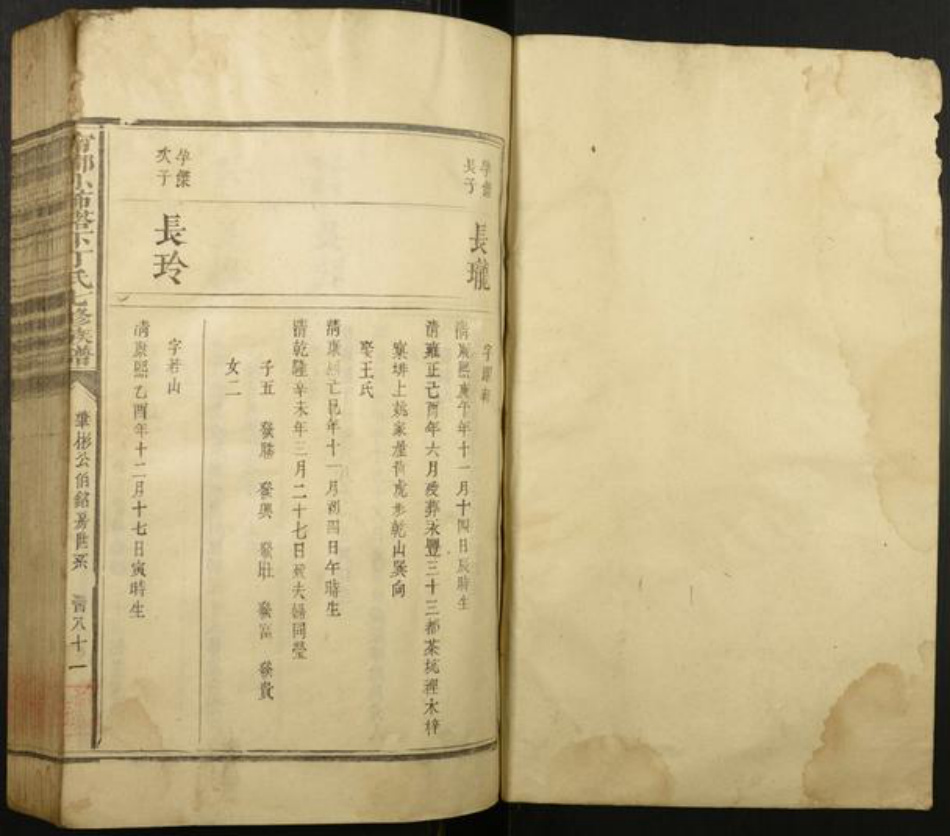 孕傑
長子
長瓏
字
清康熙庚午年十一月十四日辰時生
清雍正己酉年六月歿葬永豐三十三都茶坑裡水梓
窠排上姚家屋背虎形乾山巽向
娶王氏
清康熙年十一月初四日午時生
清乾隆辛未年三月二十七日歿夫婦同塋
子五 發勝 發興 發壯 發富 發貴
女二
孕傑
次子
長玲
字若山
清康熙乙酉年十二月十七日寅時生
都小布塔下丁氏七修族譜
肇彬公伯銘房世系
八十一